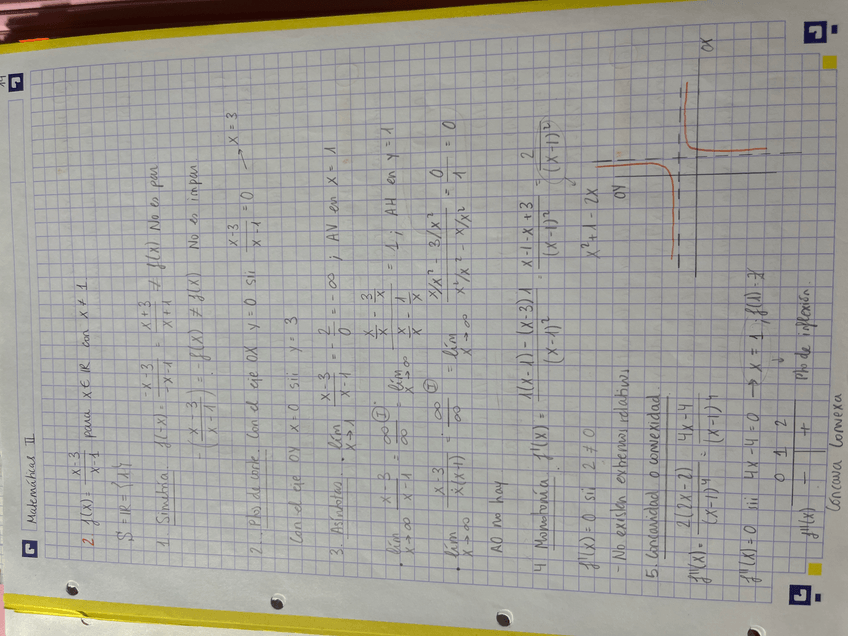 Matemáticas II
2. f(x) = x-3 / x-1 para x ∈ ℝ con x ≠ 1
D = ℝ - {1}
1. Simetría. f(-x) = -x-3 / -x-1 = x+3 / x+1 ≠ f(x) No es par
-(x-3 / x-1) = -f(x) ≠ f(x) No es impar
2. Ptos de corte. Con el eje OX y=0 sii x-3 / x-1 = 0 → x=3
Con el eje OY x=0 sii y=3
3. Asíntotas. • lím x→1 x-3 / x-1 = -2/0 = -∞ ; AV en x=1
• lím x→∞ x-3 / x-1 = ∞/∞ Ⓘ = lím x→∞ x/x - 3/x / x/x - 1/x = 1 ; AH en y=1
• lím x→∞ x-3 / x(x-1) = ∞/∞ Ⓘ = lím x→∞ x/x² - 3/x² / x²/x² - x/x² = 0/1 = 0
AO no hay
4. Monotonía. f'(x) = 1(x-1)-(x-3)1 / (x-1)² = x-1-x+3 / (x-1)² = 2 / (x-1)²
f'(x)=0 sii 2≠0
x²+1-2x
- No existen extremos relativos
5. Concavidad o convexidad.
f''(x) = 2(2x-2) / (x-1)⁴ = 4x-4 / (x-1)⁴
f''(x)=0 sii 4x-4=0 → x=1 ; f(1)=∄
0 1 2
f''(x) - + Pto de inflexión
Cóncava Convexa
OY
OX